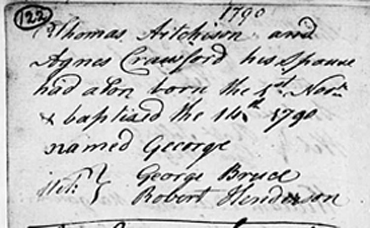 122
1790
Thomas Aitchison and
Agnes Crawford his Spouse
had a Son born the 1st Novr
& baptized the 14th 1790
named George
Wit: } George Bruce
Robert Henderson